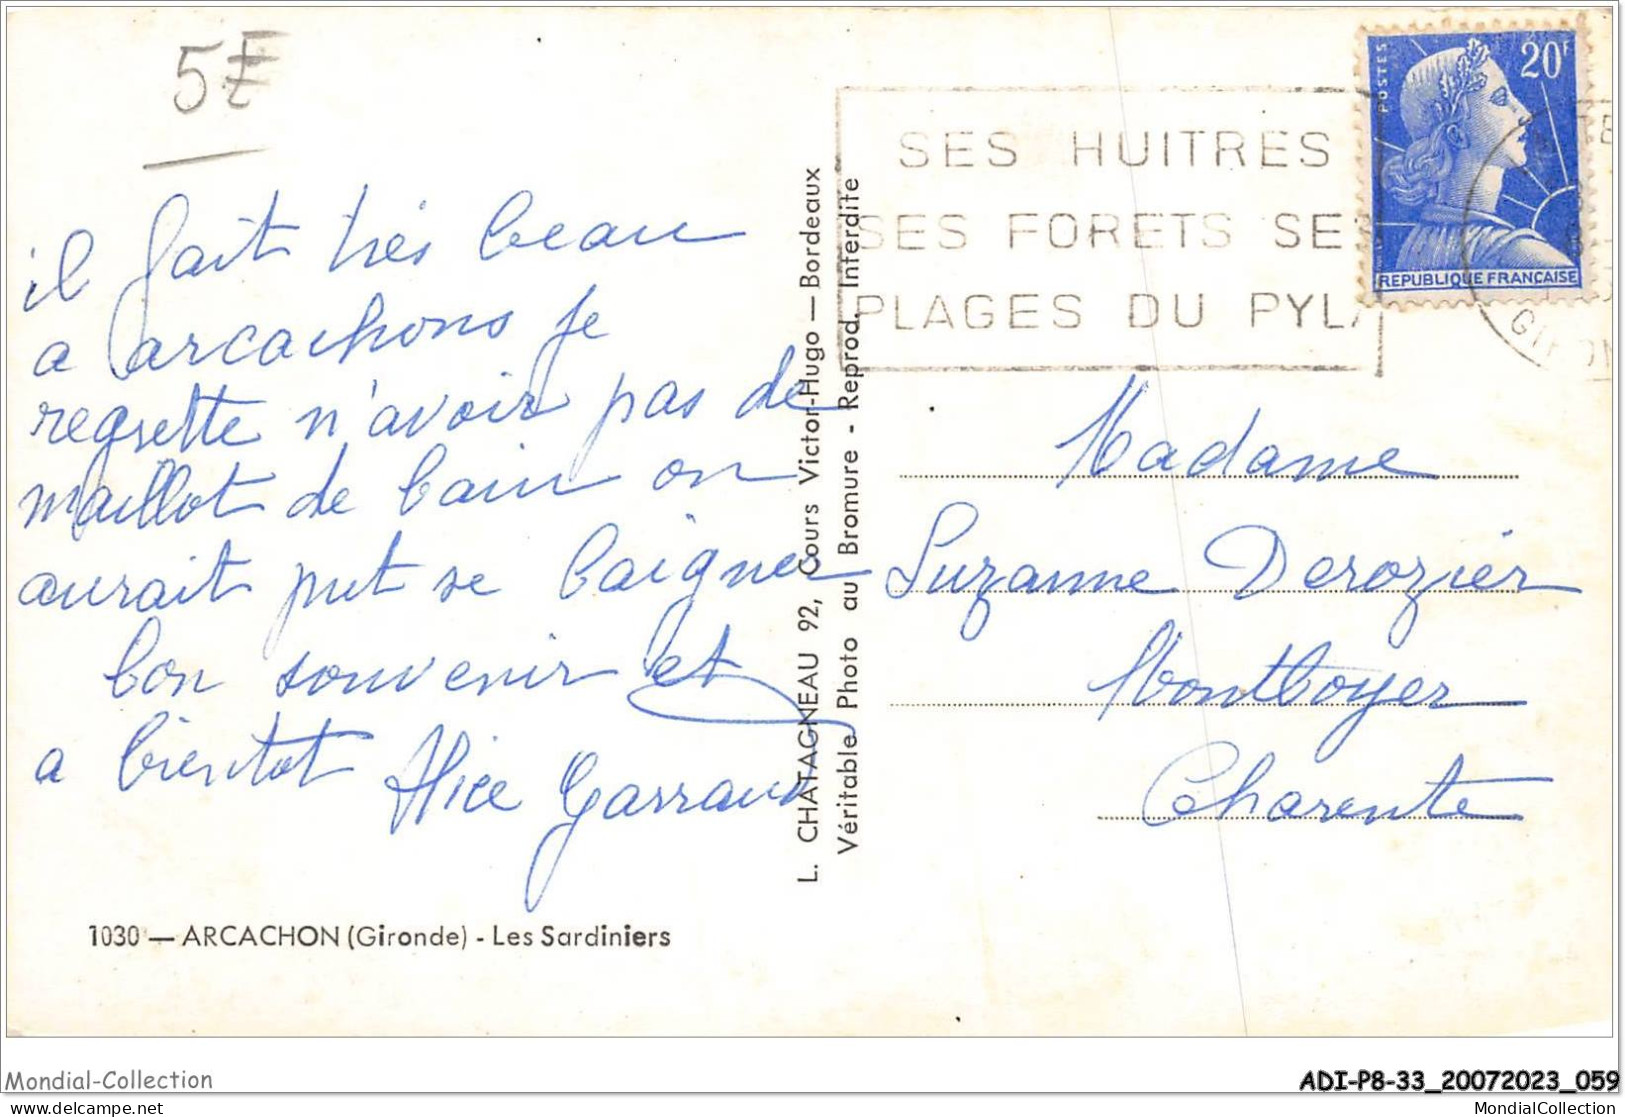 5€
il fait très beau
a arcachons je
regrette n'avoir pas de
maillot de bain on
aurait put se baigner
bon souvenir et
a bientot Alice Garraud
1030 — ARCACHON (Gironde) - Les Sardiniers
L. CHATAGNEAU 92, Cours Victor-Hugo — Bordeaux
Véritable Photo au Bromure - Reprod. Interdite
SES HUITRES
SES FORETS SES
PLAGES DU PYLA
POSTES
20F
REPUBLIQUE FRANÇAISE
Madame
Suzanne Derozier
Montboyer
Charente
Mondial-Collection
delcampe.net
ADI-P8-33_20072023_059
MondialCollection